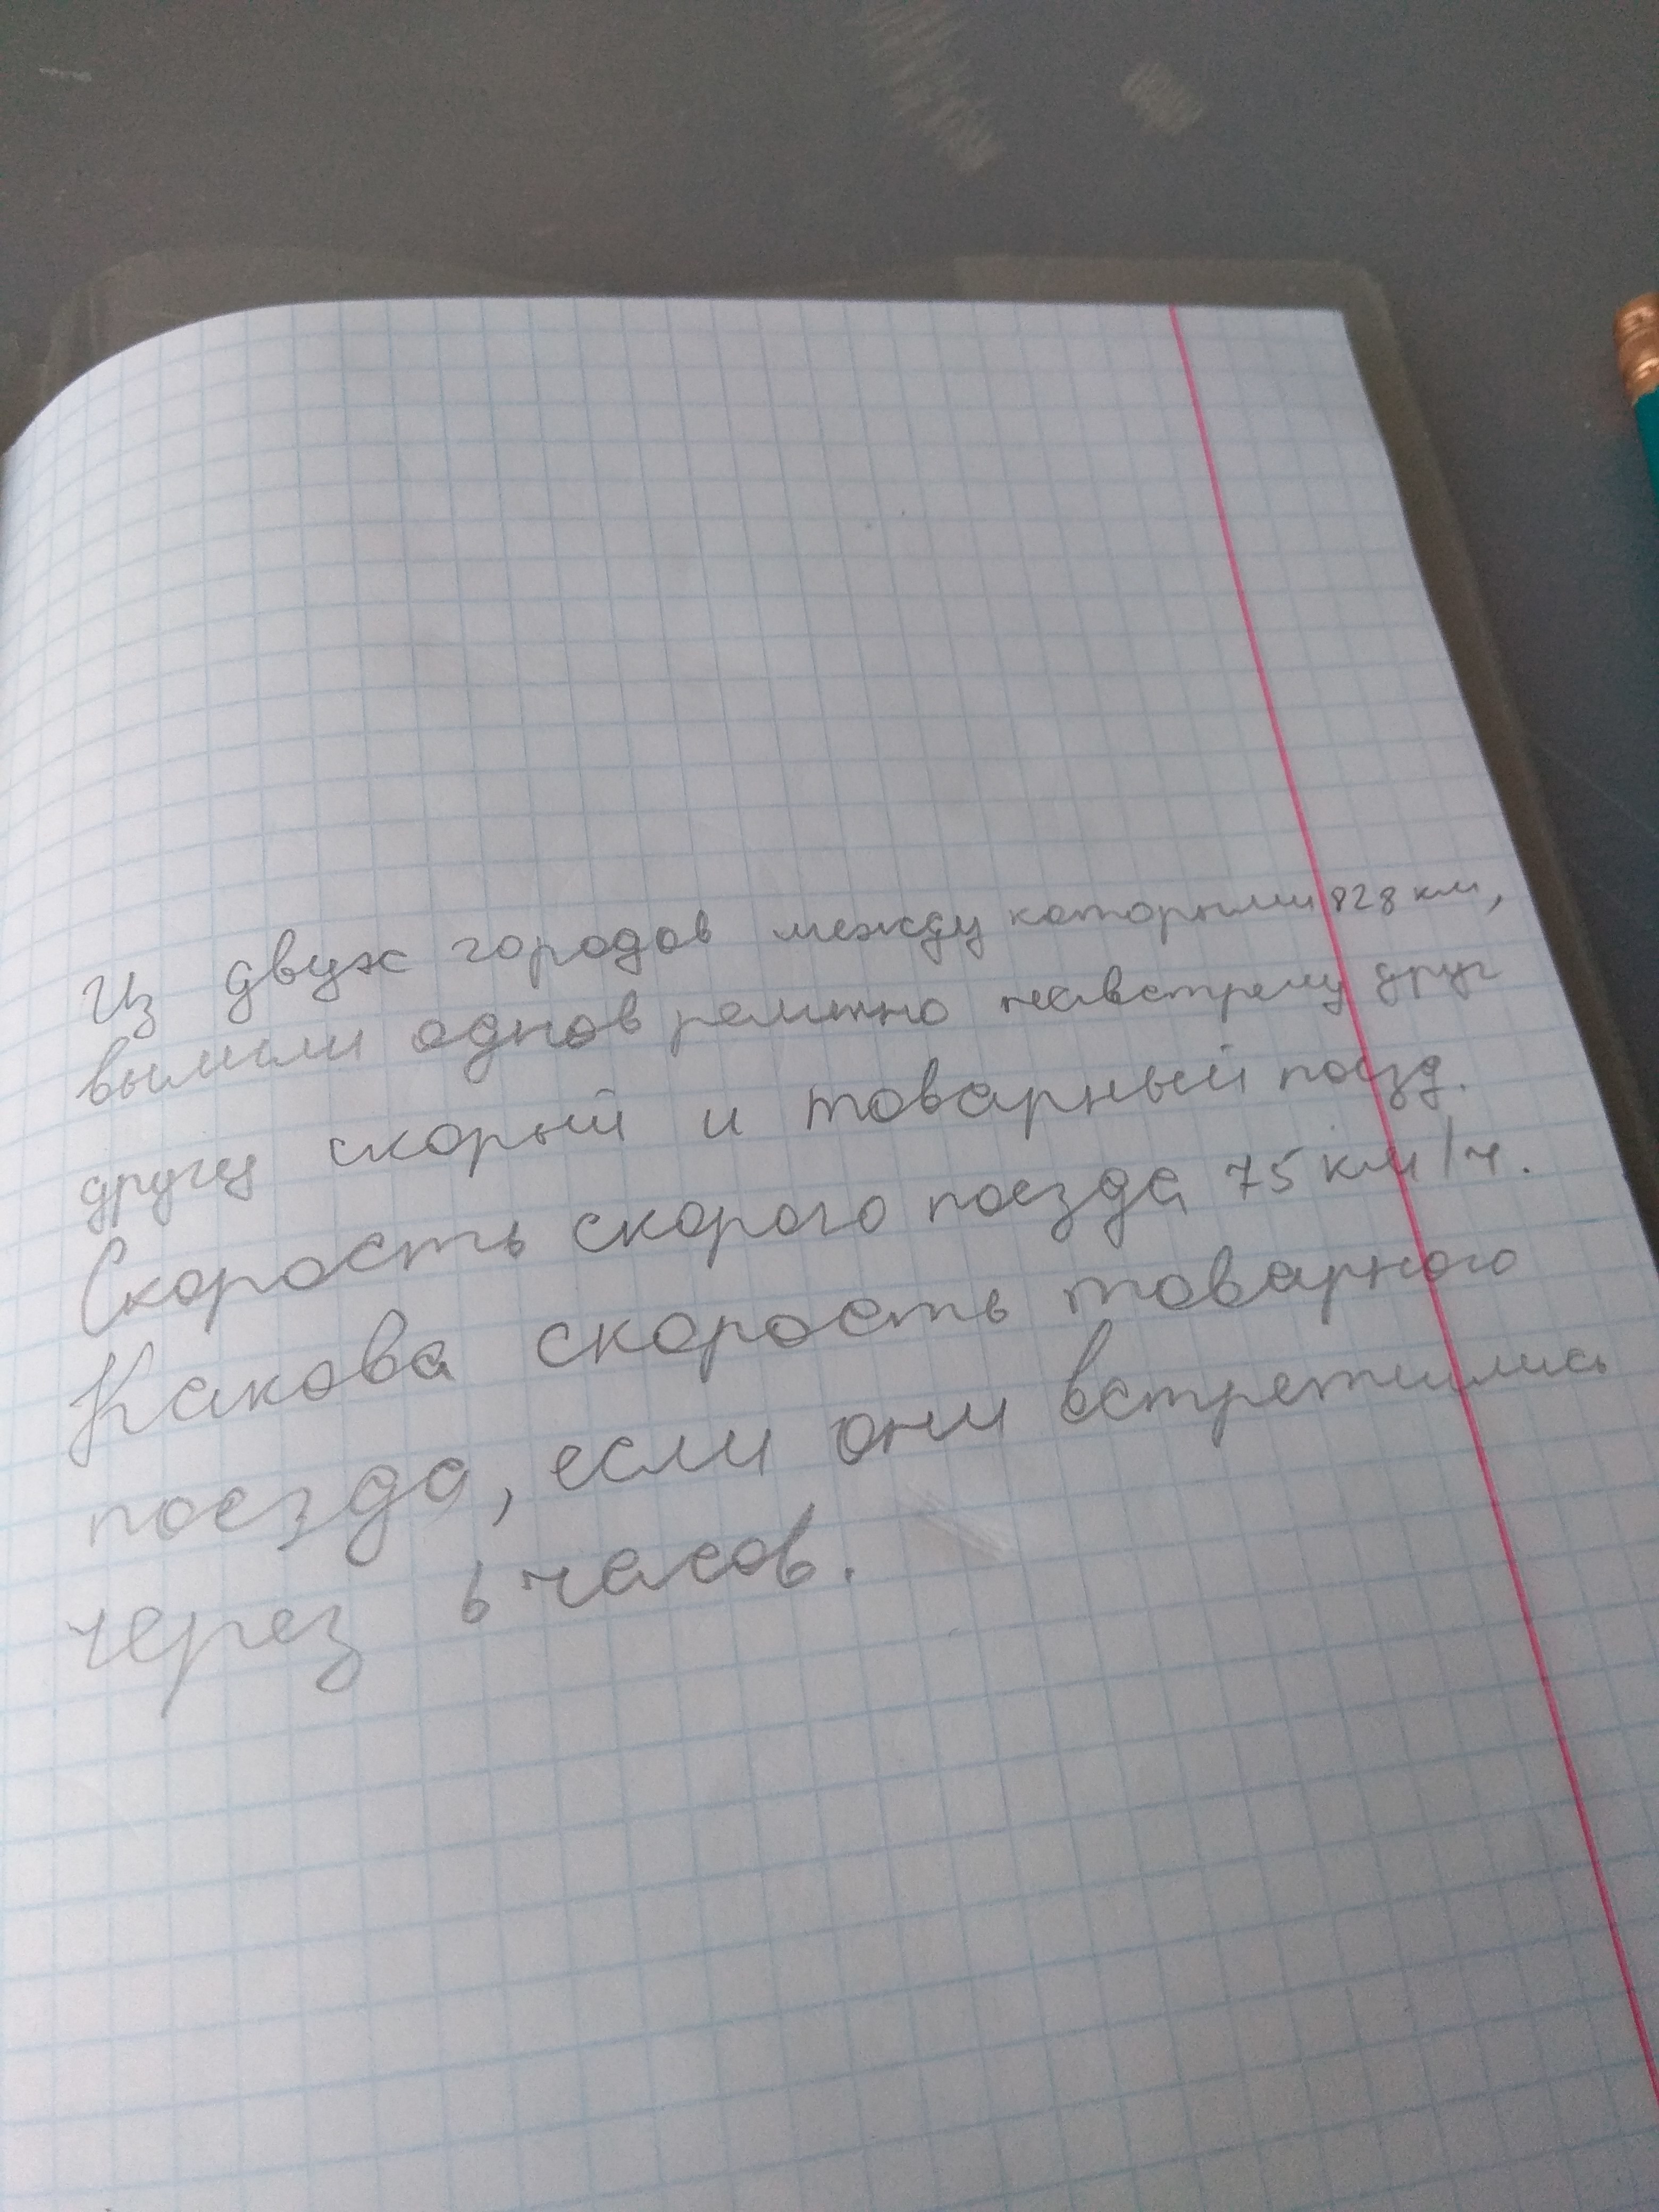 Из двух городов между которыми 828 км,
вышли одновременно навстречу друг
другу скорый и товарный поезд.
Скорость скорого поезда 75 км/ч.
Какова скорость товарного
поезда, если они встретились
через 6 часов.